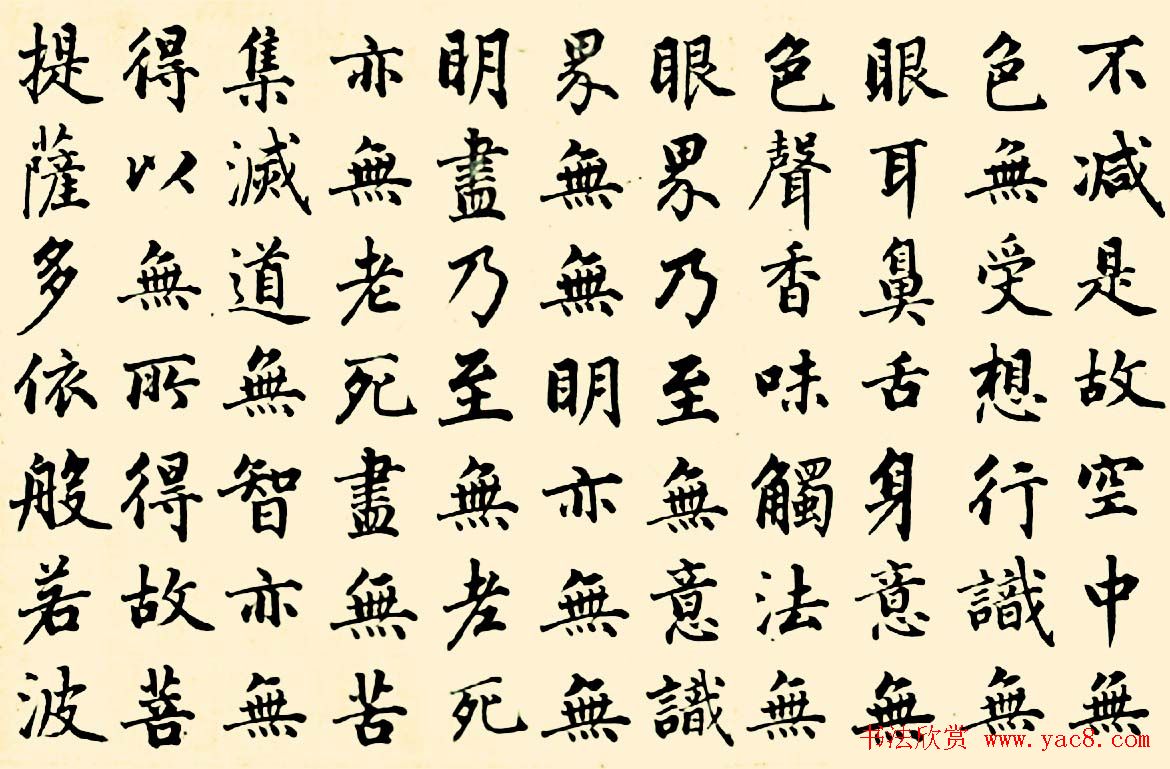 不減是故空中無
色無受想行識無
眼耳鼻舌身意無
色聲香味觸法無
眼界乃至無意識
界無無明亦無無
明盡乃至無老死
亦無老死盡無苦
集滅道無智亦無
得以無所得故菩
提薩多依般若波
书法欣赏 www.yac8.com